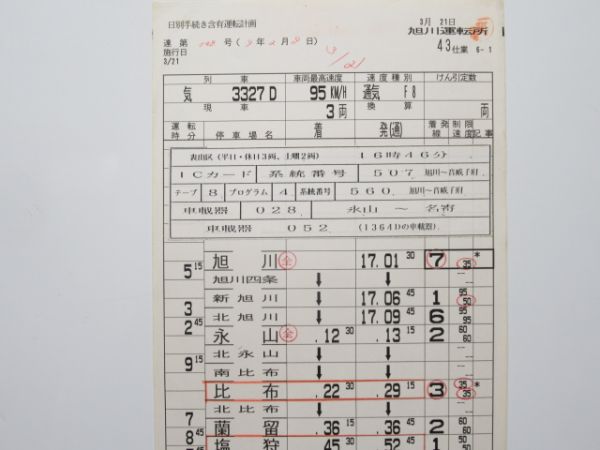 日別手続き含有運転計画
達 第 号 ( 年 月 日 )
施行日
3/21
3/21
3月 21日
旭川運転所
43仕業 6-1
列車 車両最高速度 速度種別 けん引定数
気 3327D 95KM/H 通気 F8
現車 3両 換算 両
運転時分 停車場名 着 発(通) 着発線 制限速度 記事
表山区(平日・休日3両、土曜2両) 16時46分
ICカード 系統番号 507 旭川~音威子府
テープ 8 プログラム 4 系統番号 560 旭川~音威子府
車載器 028 永山 ~ 名寄
車載器 052 (1364Dの車載器)
旭川 金 17.01 30 7 35 *
5 15
旭川四条 ↓ ↓
新旭川 ↓ 17.06 45 1 95 50
3
北旭川 ↓ 17.09 45 6 95 95
2 45
永山 金 .12 30 .13 15 2 60 60
北永山 ↓ ↓
9 15
南比布 ↓ ↓
比布 .22 30 .29 15 3 35 35 *
北比布 ↓ ↓
7
蘭留 .36 15 .36 45 2 60 60
8 45
塩狩 45 30 52 45 1 50 50